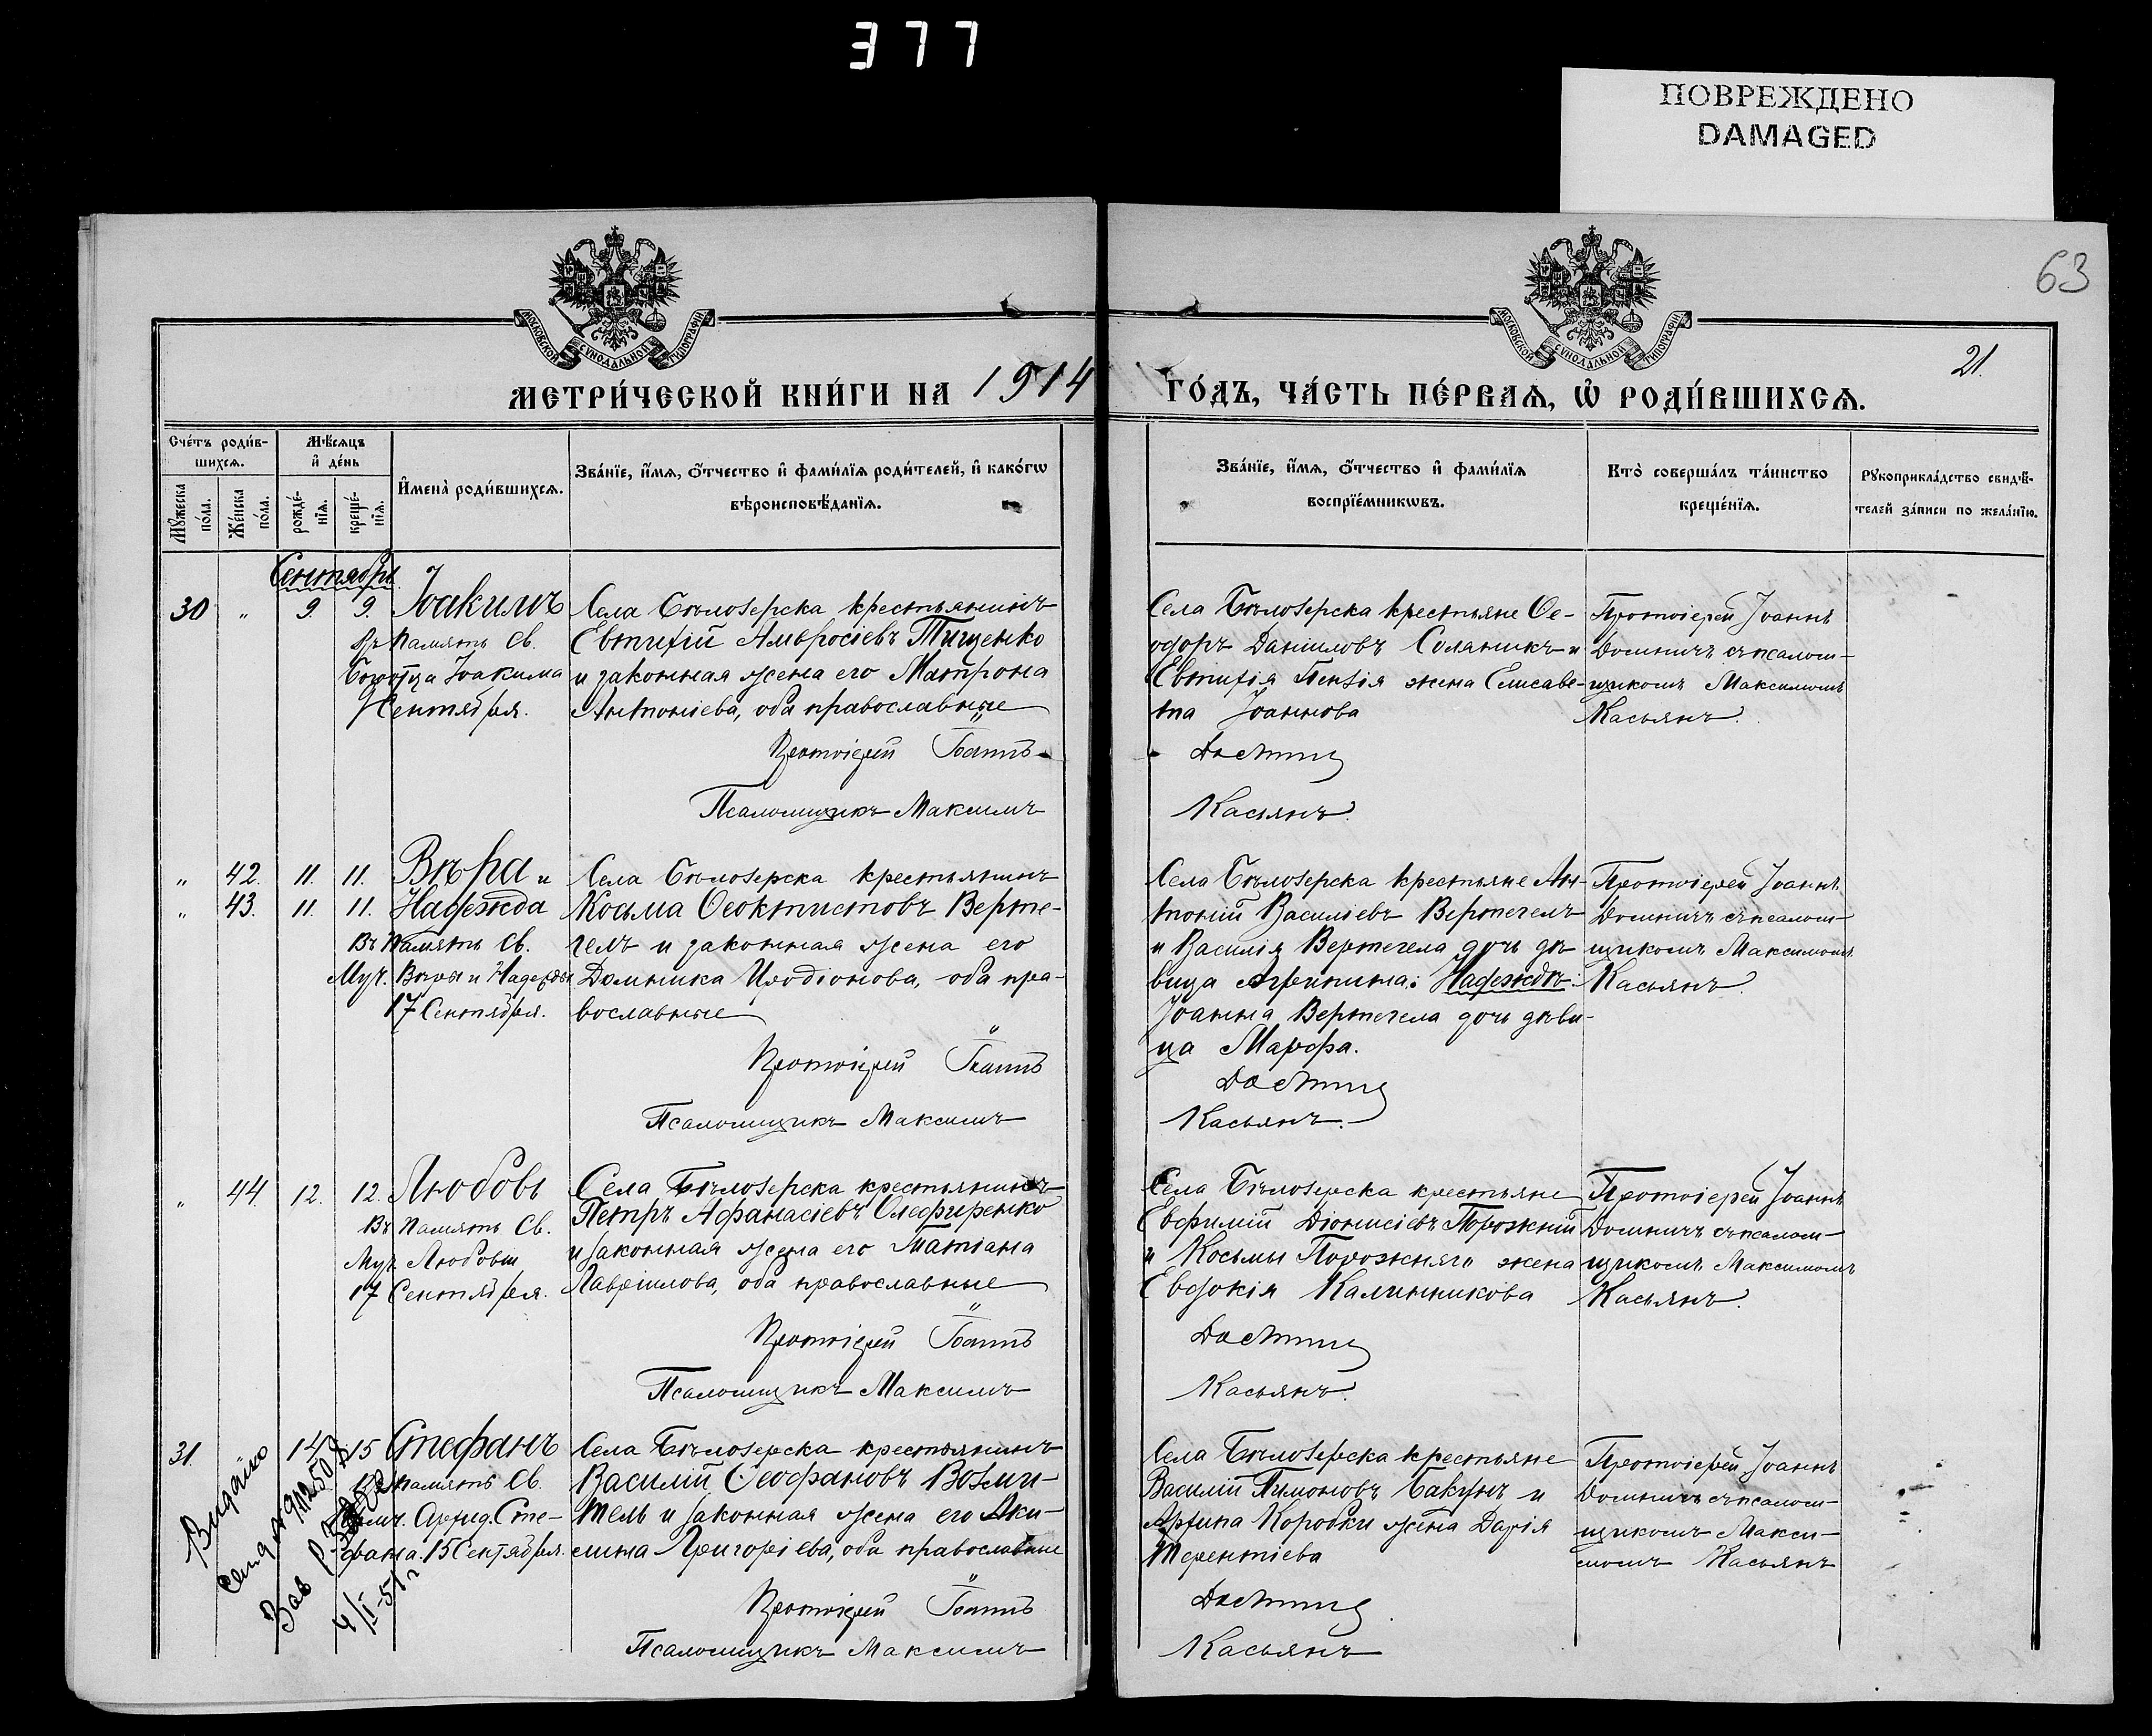 377
ПОВРЕЖДЕНО
DAMAGED
63
МОСКОВСКОЙ СУНОДАЛЬНОЙ ТИПОГРАФІИ
МОСКОВСКОЙ СУНОДАЛЬНОЙ ТИПОГРАФІИ
21.
МЕТРИ́ЧЕСКОЙ КНИ́ГИ НА 1914
ГО́ДЪ, ЧА́СТЬ ПЕ́РВАѦ, Ѡ҆ РОДИ́ВШИХСѦ.
Сче́тъ роди́в-
шихсѧ.
Мѣ́сѧцъ
и҆ де́нь
Мꙋ́жеска
по́ла.
Же́нска
по́ла.
рожде́-
нїѧ.
креще́-
нїѧ.
И҆мена̀ роди́вшихсѧ.
Зва́нїе, и҆́мѧ, ѻ҆́тчество и҆ фами́лїѧ роди́телей, и҆ како́гѡ
вѣроисповѣ́данїѧ.
Зва́нїе, и҆́мѧ, ѻ҆́тчество и҆ фами́лїѧ
воспрїе́мникѡвъ.
Кто̀ соверша́лъ та́инство
креще́нїѧ.
Рꙋкоприкла́дство свидѣ́-
телей за́писи по жела́нїю.
Сентябрь
30 " 9. 9. Іоакимъ
Въ память Св.
Богоотца Іоакима
9 Сентября.
Села Бѣлозерска крестьянинъ
Евтихій Амвросіевъ Тищенко
и законная жена его Матрона
Антоніева, оба православные
Протоіерей Іоаннъ
Псаломщикъ Максимъ
Села Бѣлозерска крестьяне Ѳе-
одоръ Даніиловъ Соляникъ и
Евтихія жена Елисаве-
та Іоаннова
Касьянъ.
Протоіерей Іоаннъ
съ псалом-
щикомъ Максимомъ
Касьянъ.
" 42. 11. 11. Вѣра и
" 43. 11. 11. Надежда
Въ память Св.
Муч. Вѣры и Надежды
17 Сентября.
Села Бѣлозерска крестьянинъ
Косьма Ѳеоктистовъ Верте-
гелъ и законная жена его
Домника Иродіонова, оба пра-
вославные
Протоіерей Іоаннъ
Псаломщикъ Максимъ
Села Бѣлозерска крестьяне Ан-
тоній Василіевъ Вертегелъ
и Василія Вертегела дочь дѣ-
вица Агрипина: Надеждѣ:
Іоанна Вертегела дочь дѣви-
ца Марфа.
Касьянъ.
Протоіерей Іоаннъ
съ псалом-
щикомъ Максимомъ
Касьянъ.
" 44. 12. 12. Любовь
Въ память Св.
Муч. Любови
17 Сентября.
Села Бѣлозерска крестьянинъ
Петръ Афанасіевъ Олефиренко
и законная жена его Татіана
Гавріилова, оба православные
Протоіерей Іоаннъ
Псаломщикъ Максимъ
Села Бѣлозерска крестьяне
Евфимій Діонисіевъ Порожній
и Косьмы Порожняго жена
Евдокія Калинникова
Касьянъ.
Протоіерей Іоаннъ
съ псалом-
щикомъ Максимомъ
Касьянъ.
31. " 14. 15 Стефанъ
Въ память Св.
Сте-
фана. 15 Сентября.
Села Бѣлозерска крестьянинъ
Василій Ѳеофановъ Возми-
тель и законная жена его Аки-
лина Григоріева, оба православные
Протоіерей Іоаннъ
Псаломщикъ Максимъ
Села Бѣлозерска крестьяне
Василій Тимоновъ Бакунъ и
Архипа Коробки жена Дарія
Терентіева
Касьянъ
Протоіерей Іоаннъ
съ псалом-
щикомъ Макси-
момъ Касьянъ
Видано
Зав
4/II-51 г